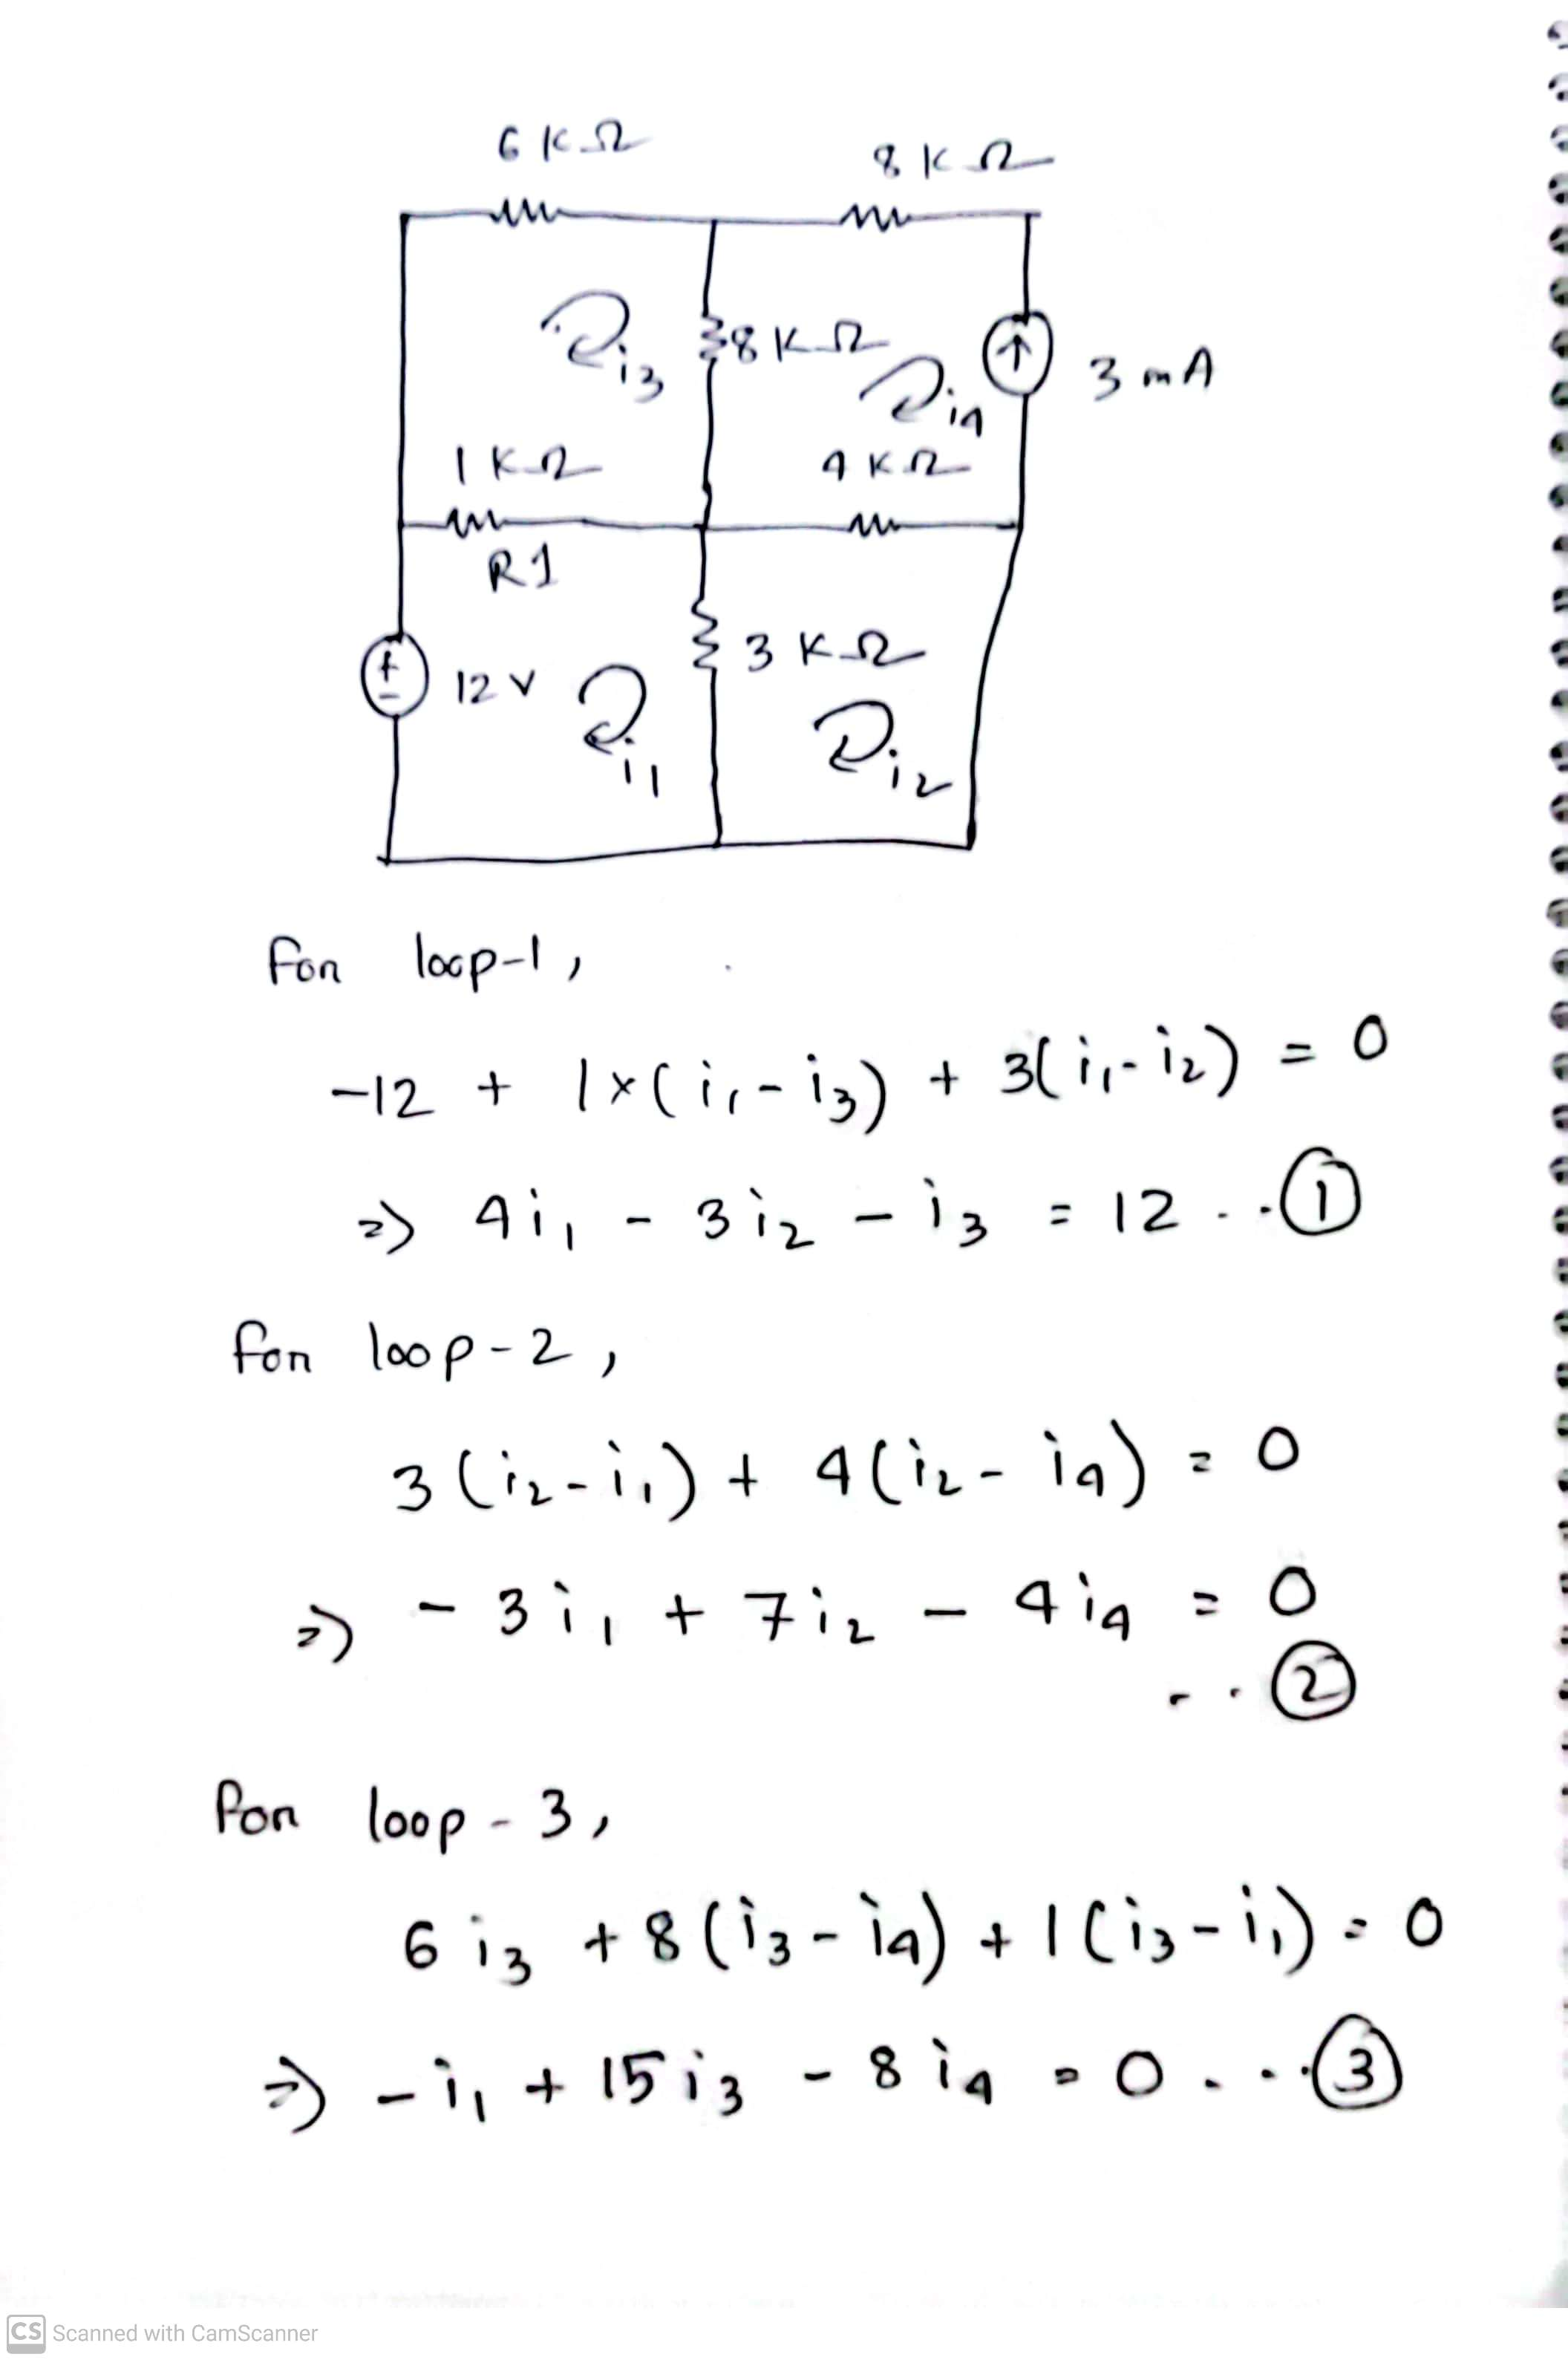 6 KΩ
8 KΩ
i3
8 KΩ
i4
3 mA
1 KΩ
4 KΩ
R1
+
-
12 V
3 KΩ
i1
i2
for loop-1,
-12 + 1×(i1 - i3) + 3(i1 - i2) = 0
=> 4i1 - 3i2 - i3 = 12 ..①
for loop-2,
3(i2 - i1) + 4(i2 - i4) = 0
=> -3i1 + 7i2 - 4i4 = 0
..②
for loop-3,
6i3 + 8(i3 - i4) + 1(i3 - i1) = 0
=> -i1 + 15i3 - 8i4 = 0 ...③
CS Scanned with CamScanner